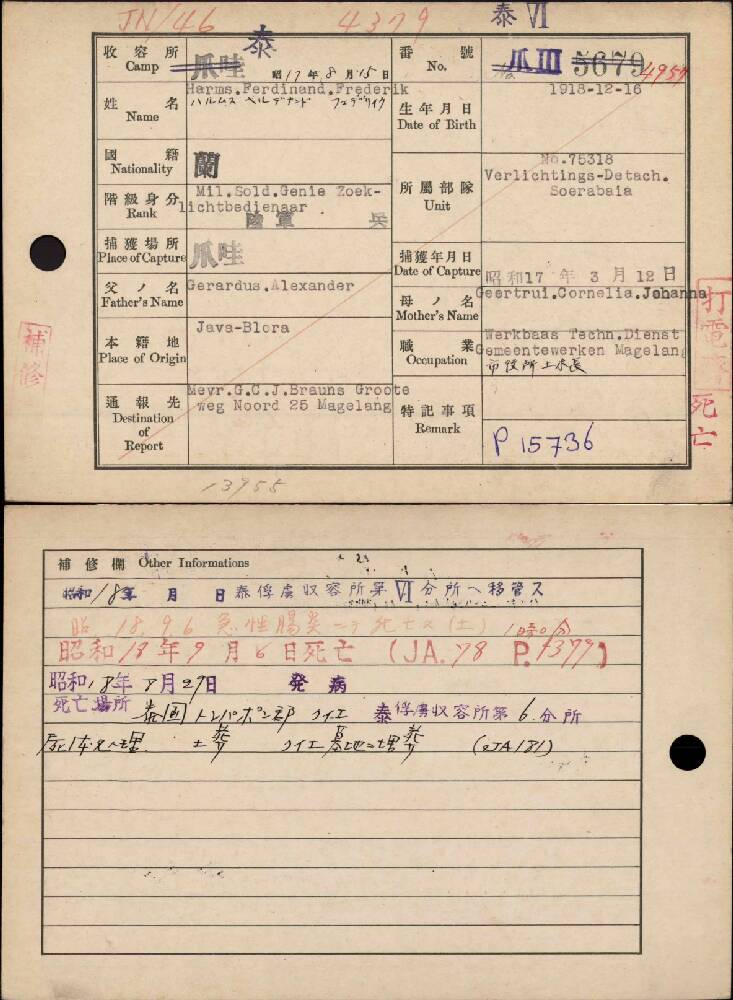 JN/46 4379 泰 VI
收容所 Camp 爪哇 泰 昭17年8月15日
番號 No. 爪III 5679 4957
姓名 Name Harms.Ferdinand.Frederik
ハルムス ヘルデナンド フレデリイク
生年月日 Date of Birth 1918-12-16
國籍 Nationality 蘭
所屬部隊 Unit No.75318
Verlichtings-Detach.
Soerabaia
階級身分 Rank Mil.Sold.Genie Zoek-
lichtbedienaar
陸軍 兵
捕獲場所 Place of Capture 爪哇
捕獲年月日 Date of Capture 昭和17年3月12日
父ノ名 Father's Name Gerardus.Alexander
母ノ名 Mother's Name Geertrui.Cornelia.Johanna
本籍地 Place of Origin Java-Blora
職業 Occupation Werkbaas Techn.Dienst
Gemeentewerken Magelang
市役所土木長
通報先 Destination of Report Mevr.G.C.J.Brauns Groote
weg Noord 25 Magelang
特記事項 Remark P 15736
補修
打電済
死亡
13955
補修欄 Other Informations
昭和18年 月 日泰俘虜収容所第VI分所ヘ移管ス
昭18.9.6 急性腸炎ニテ死亡ス(土)
昭和18年9月6日死亡 (JA.78 P.4379)
昭和18年8月29日 発病
死亡場所 泰国 クイエ 泰俘虜収容所第6分所
土葬 クイエ墓地ニ埋葬 (JA181)